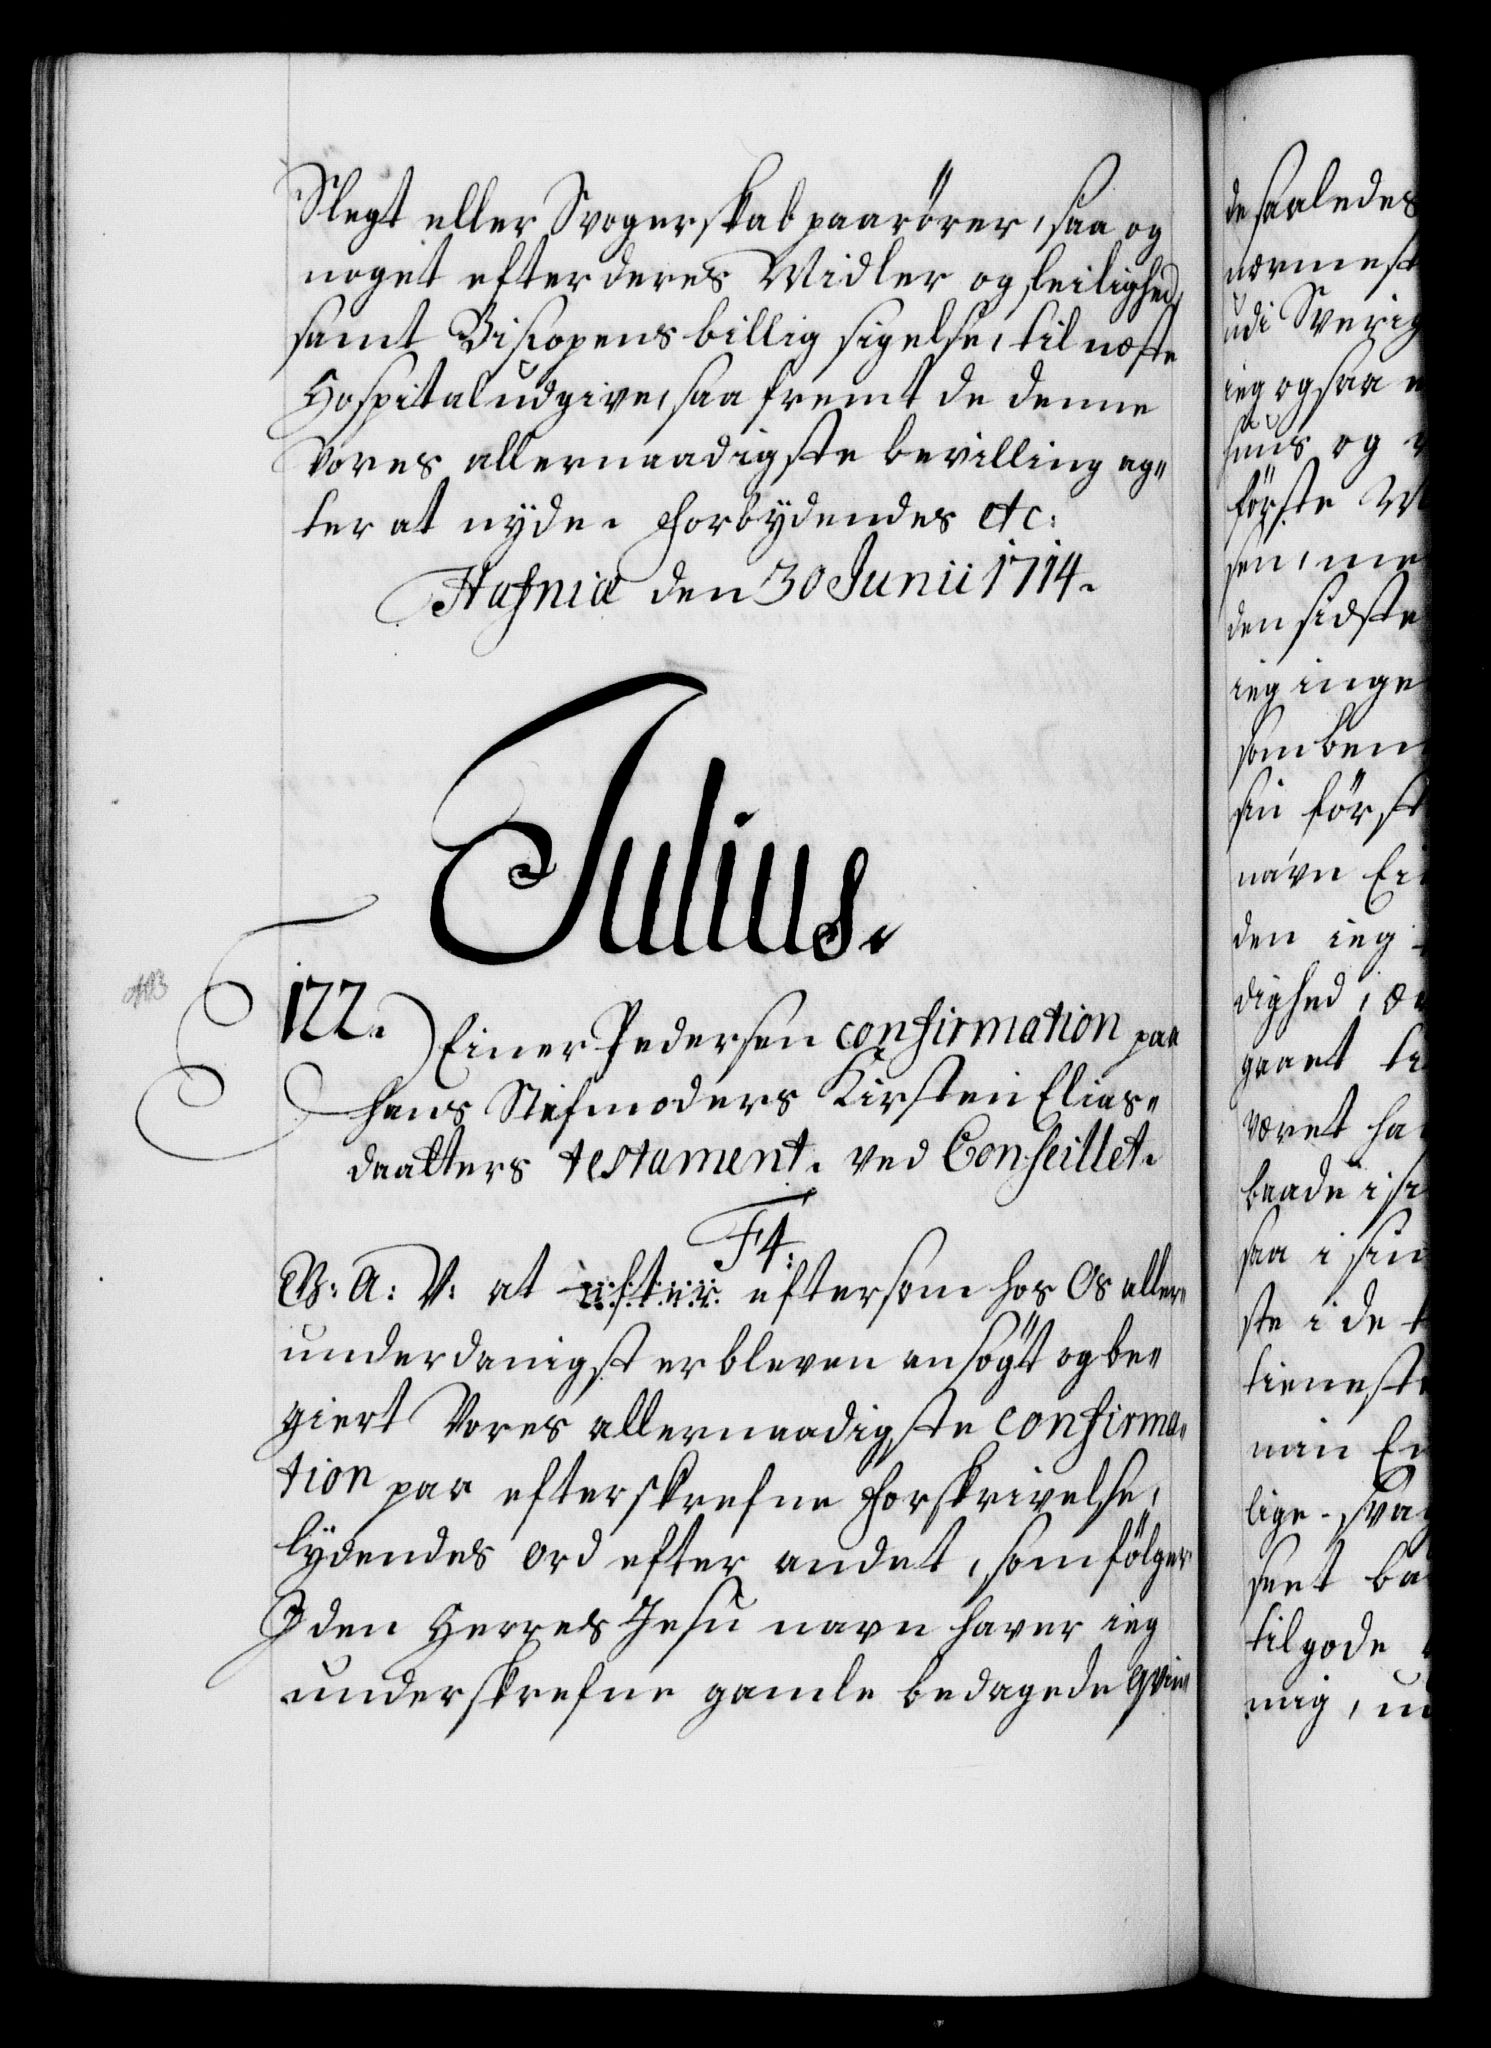 Slegt eller Svogerskab paarører, saa og
noget efter deres Midler og leilighed,
samt Biscopens billig sigelse, til næste
Hospital udgive, saa fremt de denne
Vores allernaadigste bevilling ag„
ter at nyde. Forbydendes etc:
Hafniæ den 30 Junii 1714.
Julius.
NB
122.
Einer Pedersen confirmation paa
hans Stifmoders Kirsten Elias„
daatters testament. ved Conseillet.
F4:
G: A: V: at efter eftersom hos Os aller„
underdanigst er bleven ansøgt og be„
giert Vores allernaadigste confirma„
tion paa efterskrefne Forskrivelse,
lydendes ord efter andet, som følger
I den Herres Jesu navn haver ieg
underskrefne gamle bedagede qvin„
de saaledes
nærmest
udi Sverig
ieg ogsaa
huus og
første
sen, me
den sidste
ieg inge
som bem
sin først
navn
den ieg
dighed,
gaaet
været ha
baade i
saa i sin
ste i de
tieneste
min
lige
seet
til gode
mig,